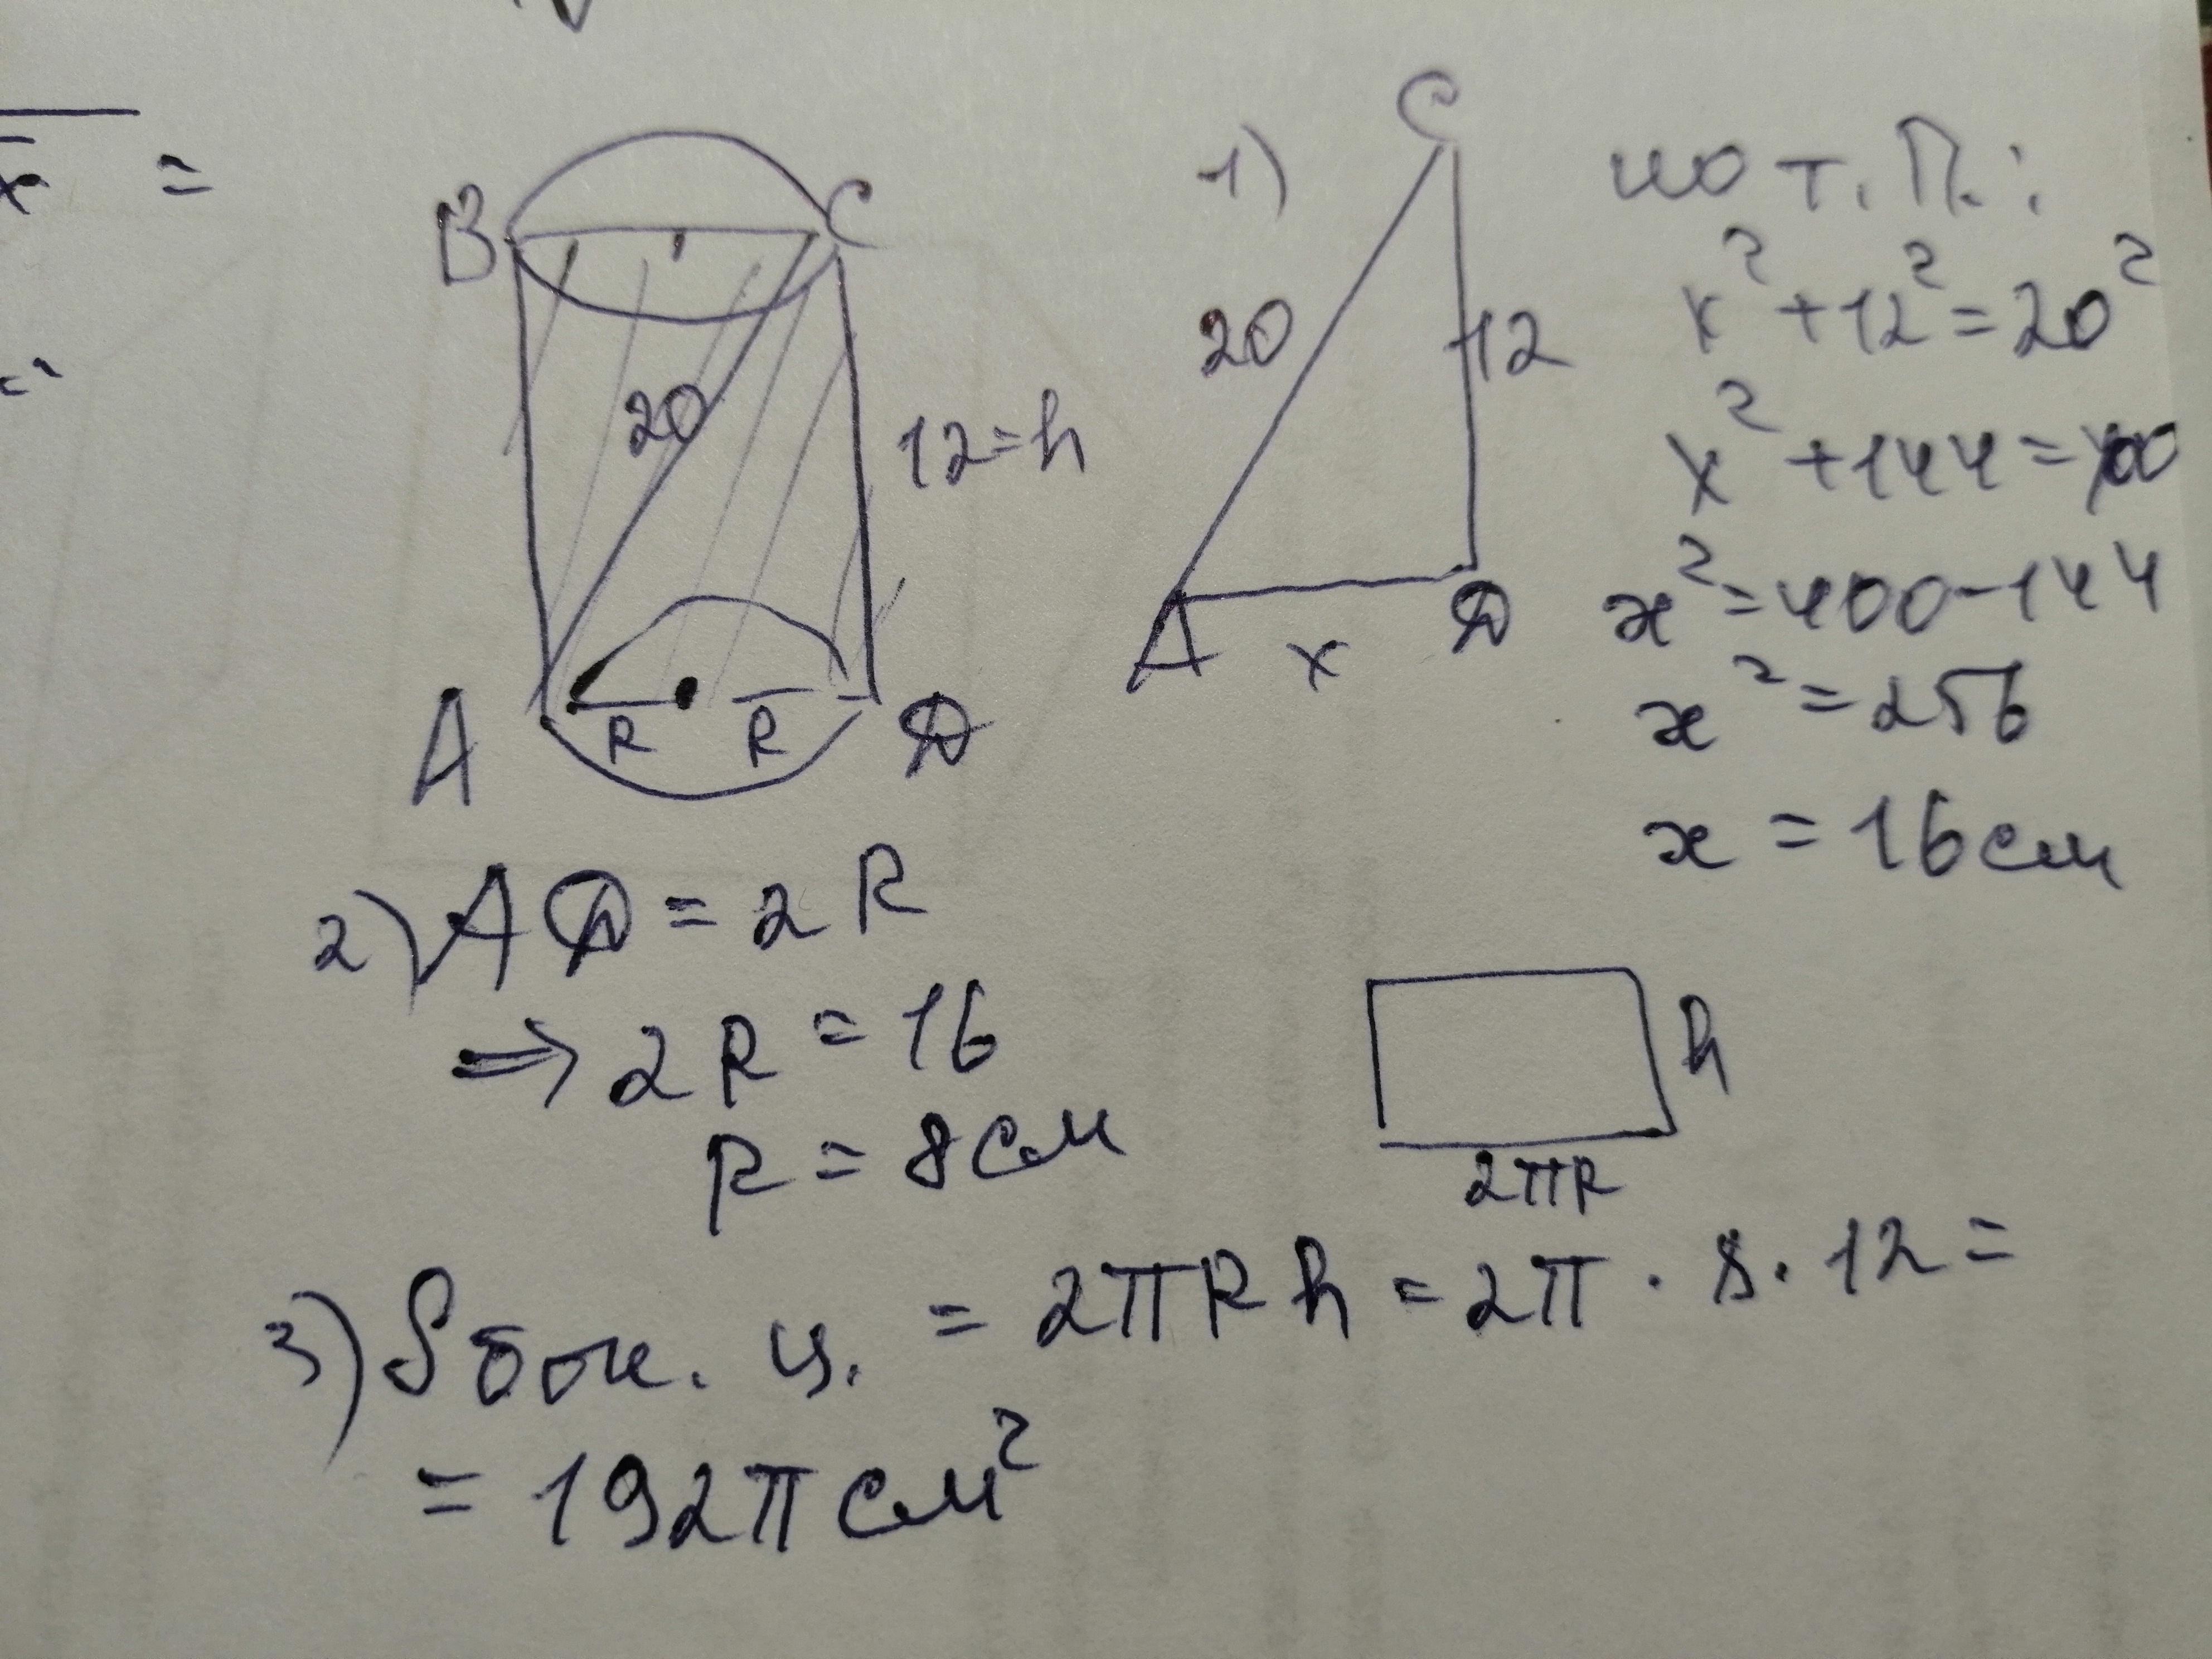 x =
B C
20
12=h
A R R D
1) C
20 12
A x D
по т. П.:
x²+12²=20²
x²+144=400
x²=400-144
x²=256
x=16см
2) AD=2R
⇒ 2R=16
R=8см
h
2πR
3) Sбок. ц. = 2πRh = 2π · 8 · 12 =
= 192π см²